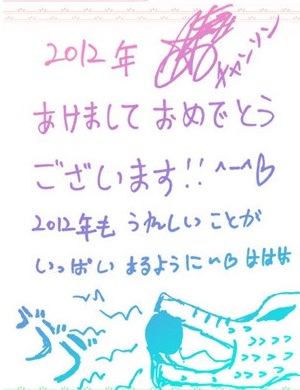 2012年 チャンソン
あけまして おめでとう
ございます!! ^-^♡
2012年も うれしい ことが
いっぱい まるように~♡ ははは
ブブブ